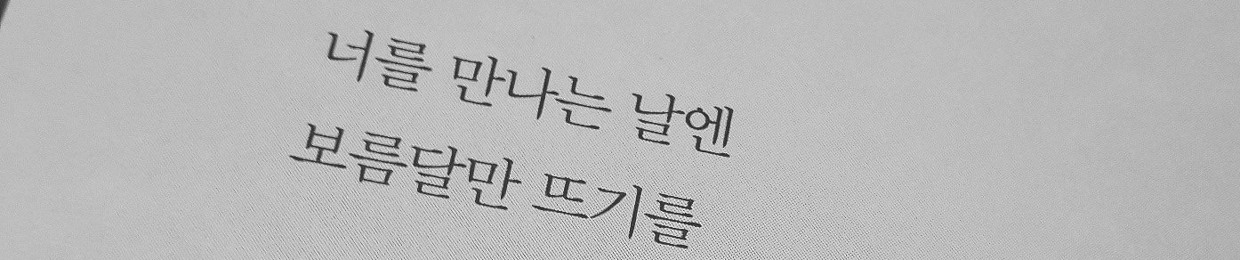 너를 만나는 날엔
보름달만 뜨기를